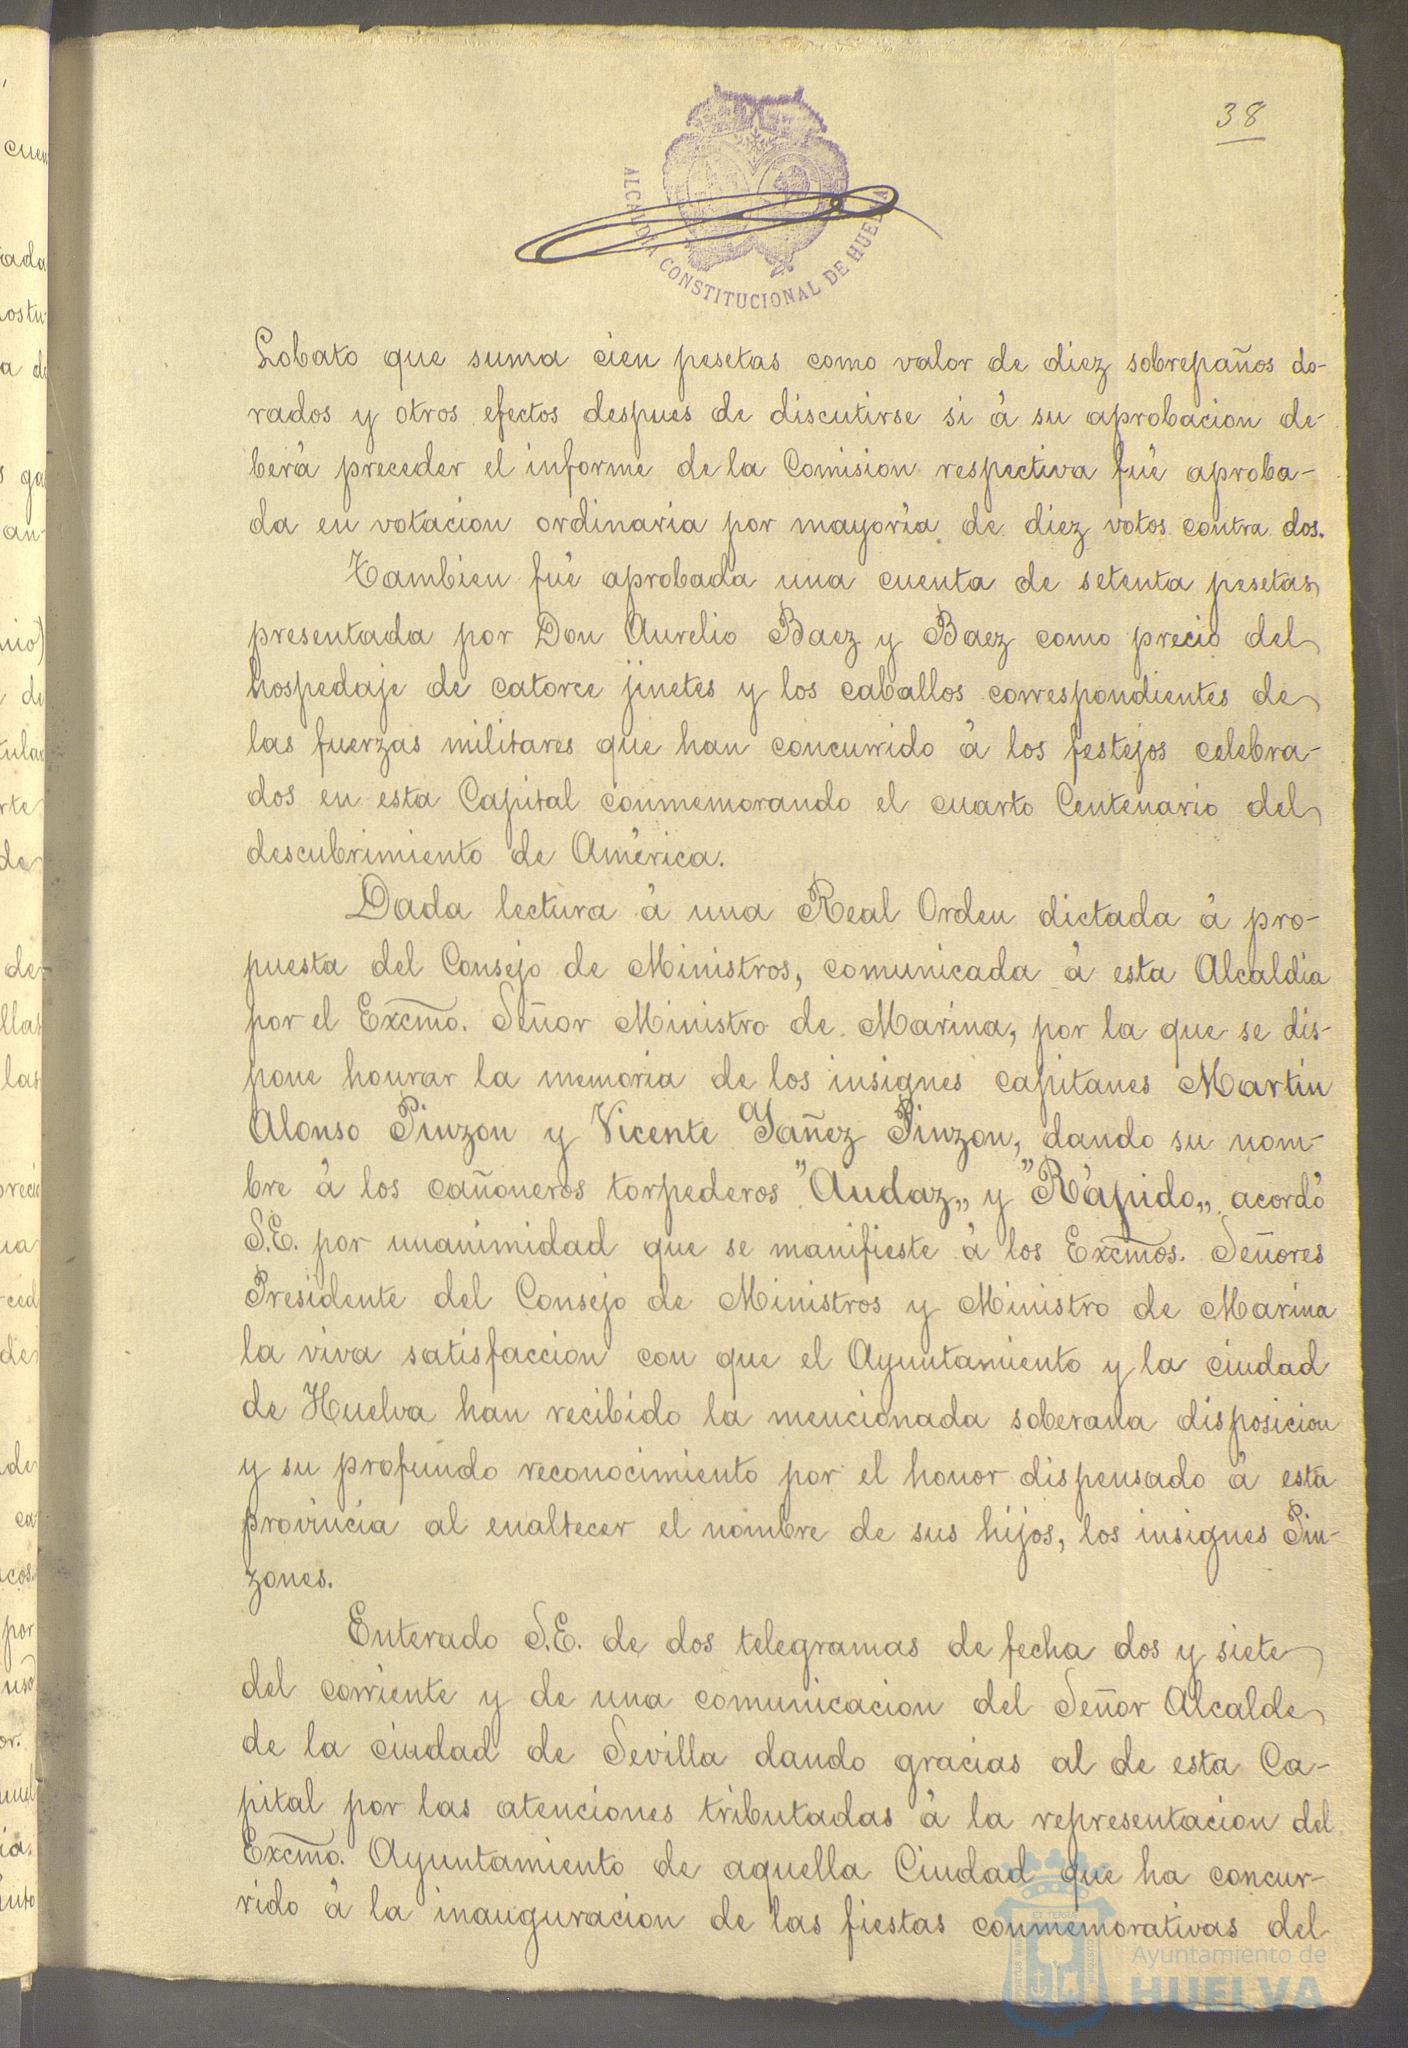 38
ALCALDÍA CONSTITUCIONAL DE HUELVA
Lobato que suma cien pesetas como valor de diez sobrepaños do-
rados y otros efectos despues de discutirse si á su aprobacion de-
berá preceder el informe de la Comision respectiva fué aproba-
da en votacion ordinaria por mayoría de diez votos contra dos.
Tambien fué aprobada una cuenta de setenta pesetas
presentada por Don Aurelio Baez y Baez como precio del
hospedaje de catorce jinetes y los caballos correspondientes de
las fuerzas militares que han concurrido á los festejos celebra-
dos en esta Capital conmemorando el cuarto Centenario del
descubrimiento de América.
Dada lectura á una Real Orden dictada á pro-
puesta del Consejo de Ministros, comunicada á esta Alcaldia
por el Excmo. Señor Ministro de Marina, por la que se dis-
pone honrar la memoria de los insignes capitanes Martin
Alonso Pinzon y Vicente Yañez Pinzon, dando su nom-
bre á los cañoneros torpederos "Audaz„ y "Rápido„ acordó
S.E. por unanimidad que se manifieste á los Excmos. Señores
Presidente del Consejo de Ministros y Ministro de Marina
la viva satisfaccion con que el Ayuntamiento y la ciudad
de Huelva han recibido la mencionada soberana disposicion
y su profundo reconocimiento por el honor dispensado á esta
provincia al enaltecer el nombre de sus hijos, los insignes Pin-
zones.
Enterado S.E. de dos telegramas de fecha dos y siete
del corriente y de una comunicacion del Señor Alcalde
de la ciudad de Sevilla dando gracias al de esta Ca-
pital por las atenciones tributadas á la representacion del
Excmo. Ayuntamiento de aquella Ciudad que ha concur-
rido á la inauguracion de las fiestas conmemorativas del
Ayuntamiento de
HUELVA